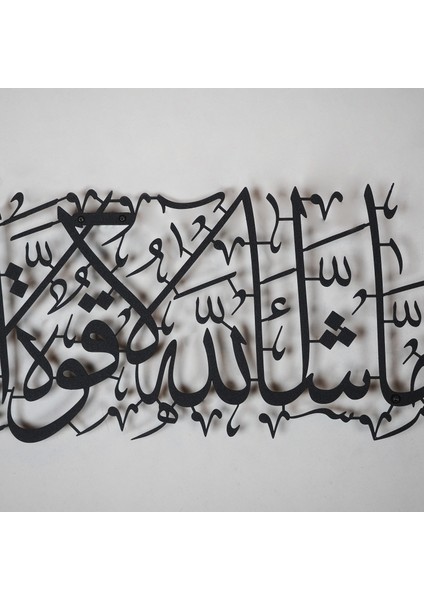 مَا شَاءَ اللّٰهُ لَا قُوَّةَ